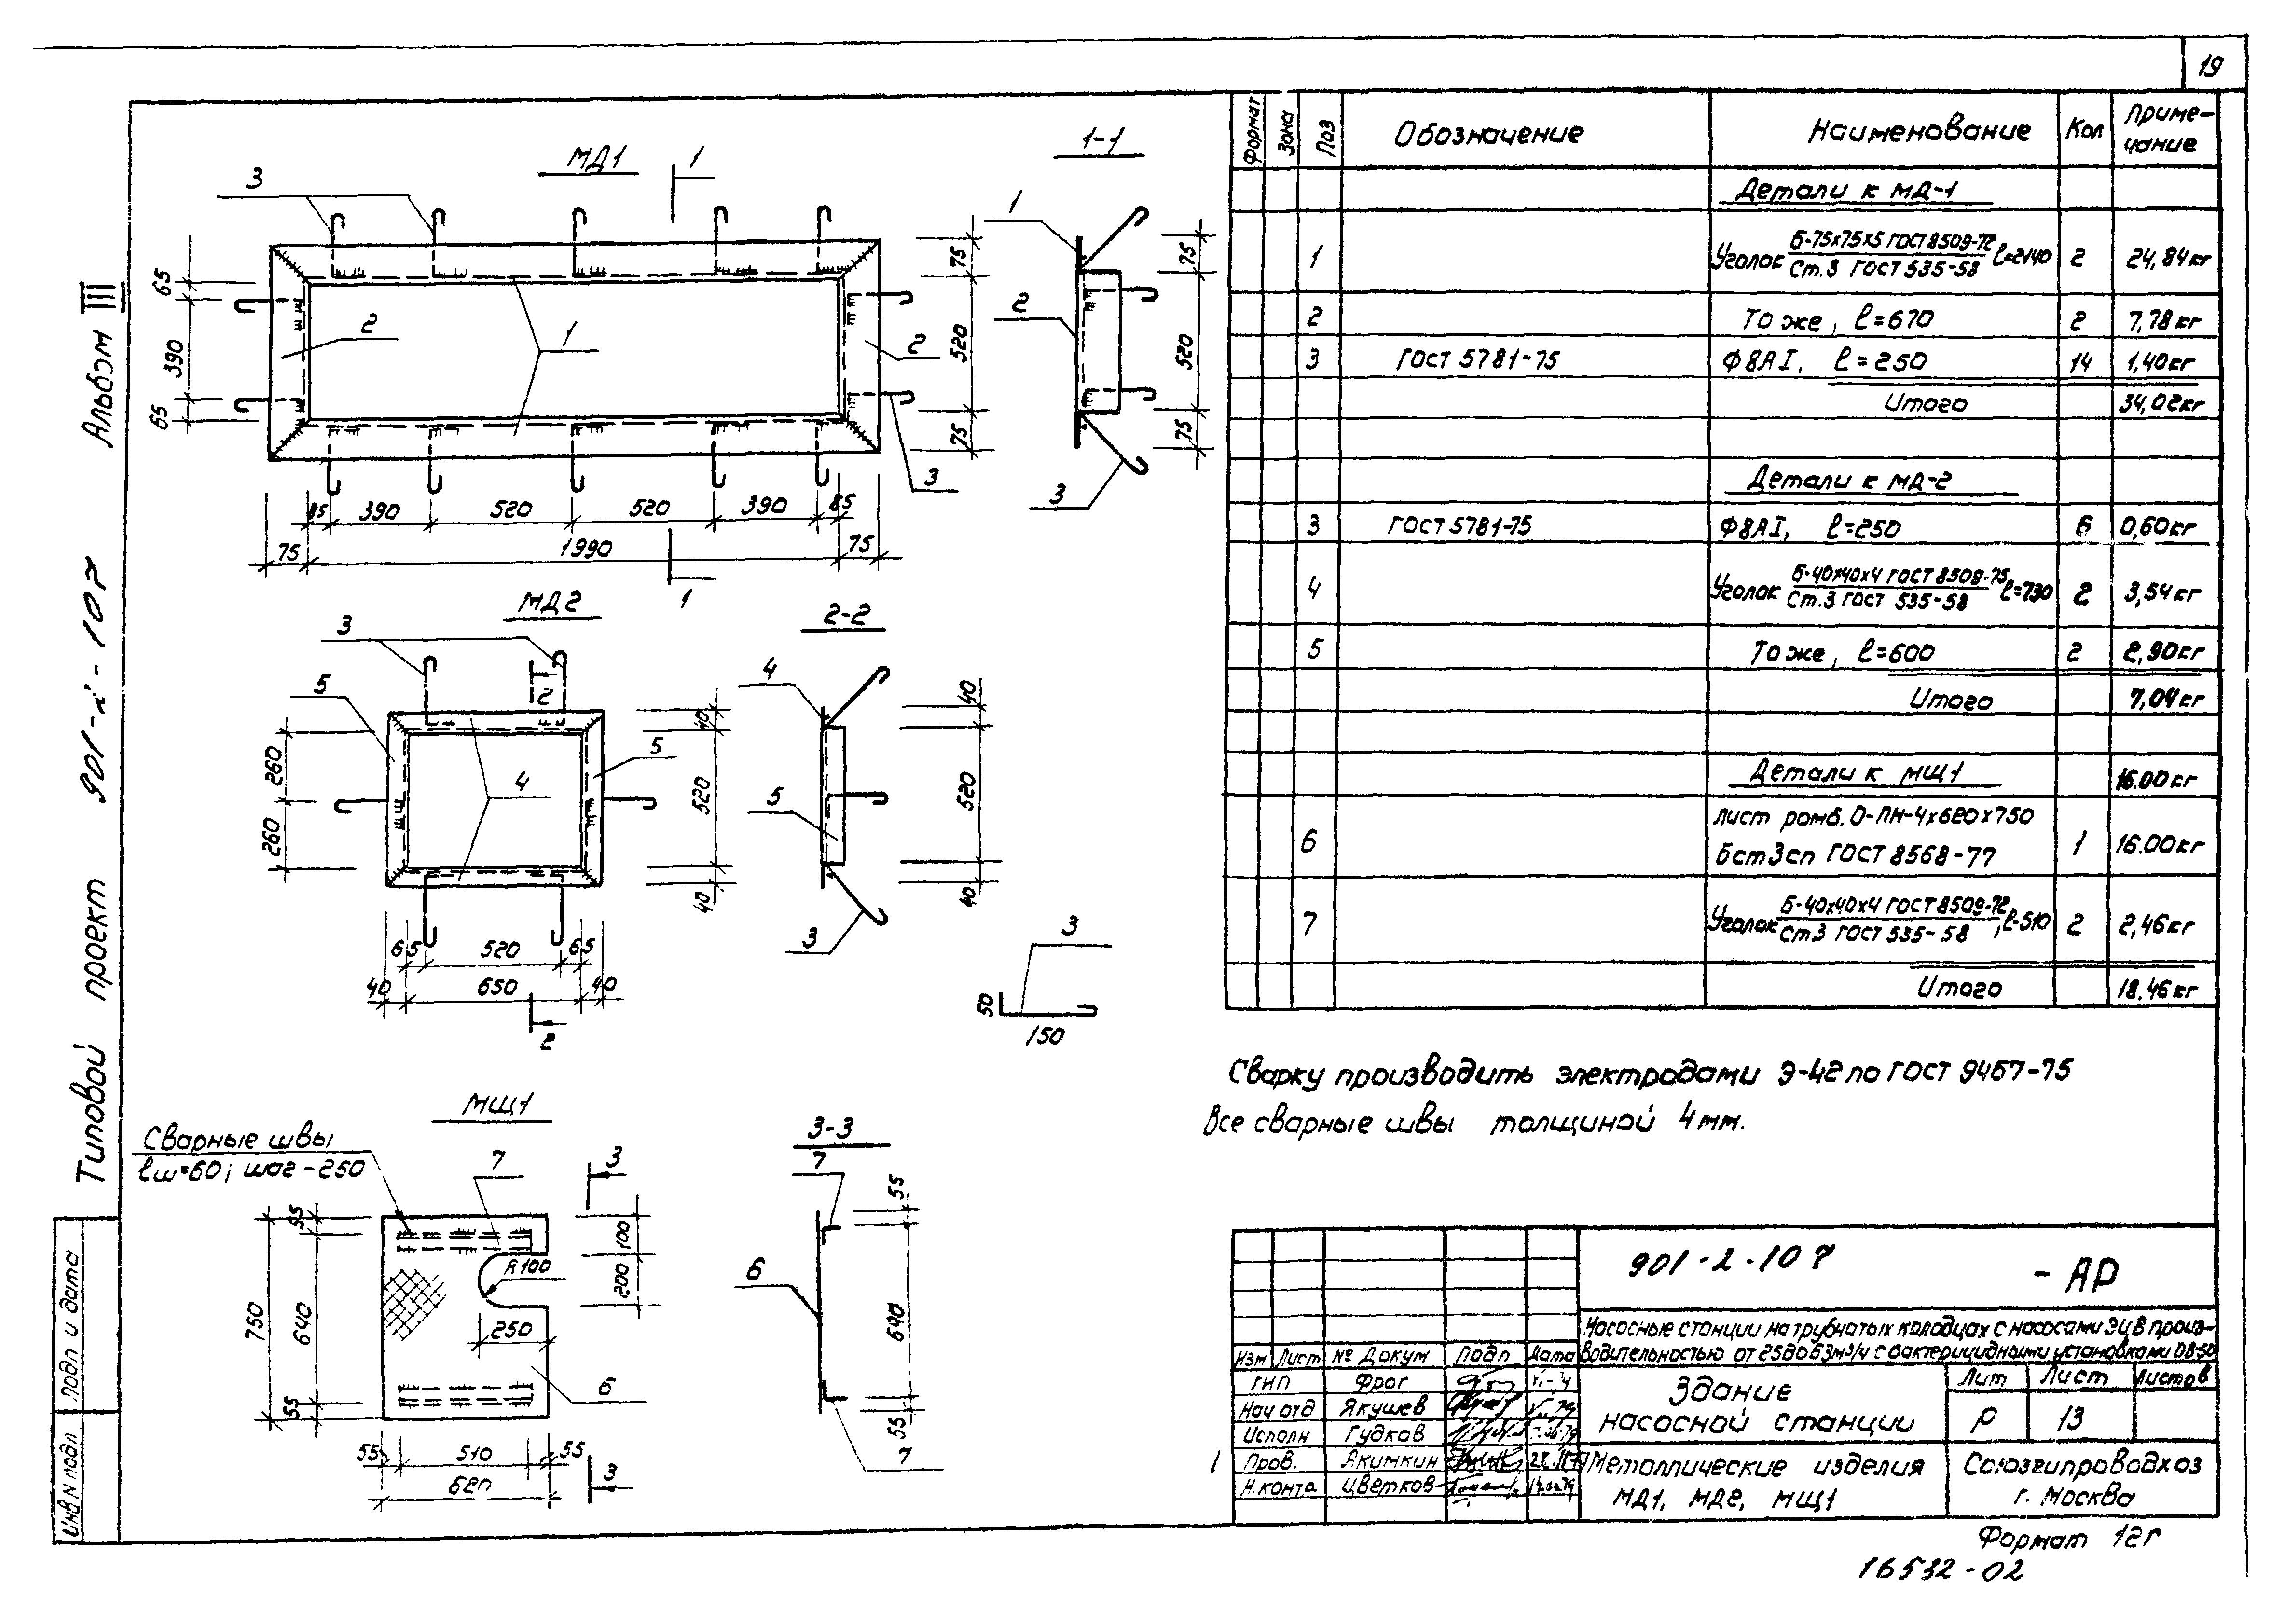 19
Альбом III
Типовой проект 901-2-107
Инв N подл
Подп и дата
МД1
1
3
2
1
2
3
65
390
65
75
520
75
85
390
520
520
390
85
75
1990
75
1
1-1
1
2
3
75
520
75
МД2
3
2
5
5
4
260
260
40
520
40
65
520
65
40
650
40
2
2-2
4
5
3
40
520
40
3
50
150
МЩ1
Сварные швы
ℓш=60; шаг-250
7
3
55
640
55
750
100
200
R100
250
6
55
510
55
620
3
3-3
7
6
55
640
55
7
Формат
Зона
Поз
Обозначение
Наименование
Кол
Приме-
чание
Детали к МД-1
1 Уголок Б-75х75х5 ГОСТ 8509-72 / Ст.3 ГОСТ 535-58 ℓ=2140 2 24,84кг
2 То же, ℓ=670 2 7,78кг
3 ГОСТ 5781-75 Ф8АI, ℓ=250 14 1,40кг
Итого 34,02кг
Детали к МД-2
3 ГОСТ 5781-75 Ф8АI, ℓ=250 6 0,60кг
4 Уголок Б-40х40х4 ГОСТ 8509-75 / Ст.3 ГОСТ 535-58 ℓ=730 2 3,54кг
5 То же, ℓ=600 2 2,90кг
Итого 7,04кг
Детали к МЩ1 16.00кг
6 Лист ромб. О-ПН-4х620х750
Бст3сп ГОСТ 8568-77 1 16.00кг
7 Уголок Б-40х40х4 ГОСТ 8509-72 / Ст3 ГОСТ 535-58, ℓ-510 2 2,46кг
Итого 18.46кг
Сварку производить электродами Э-42 по ГОСТ 9467-75
Все сварные швы толщиной 4мм.
901-2-107 -АР
Насосные станции на трубчатых колодцах с насосами ЭЦВ произ-
водительностью от 25 до 63м³/ч с бактерицидными установками ОВ-50
Изм Лист № Докум Подп Дата
ГИП Фрог
Нач отд Якушев
Исполн Гудков
1 Пров. Акимкин
Н.конта Цветков
Здание
насосной станции
Лит Лист Листов
Р 13
Металлические изделия
МД1, МД2, МЩ1
Союзгипроводхоз
г. Москва
Формат 12г
16532-02